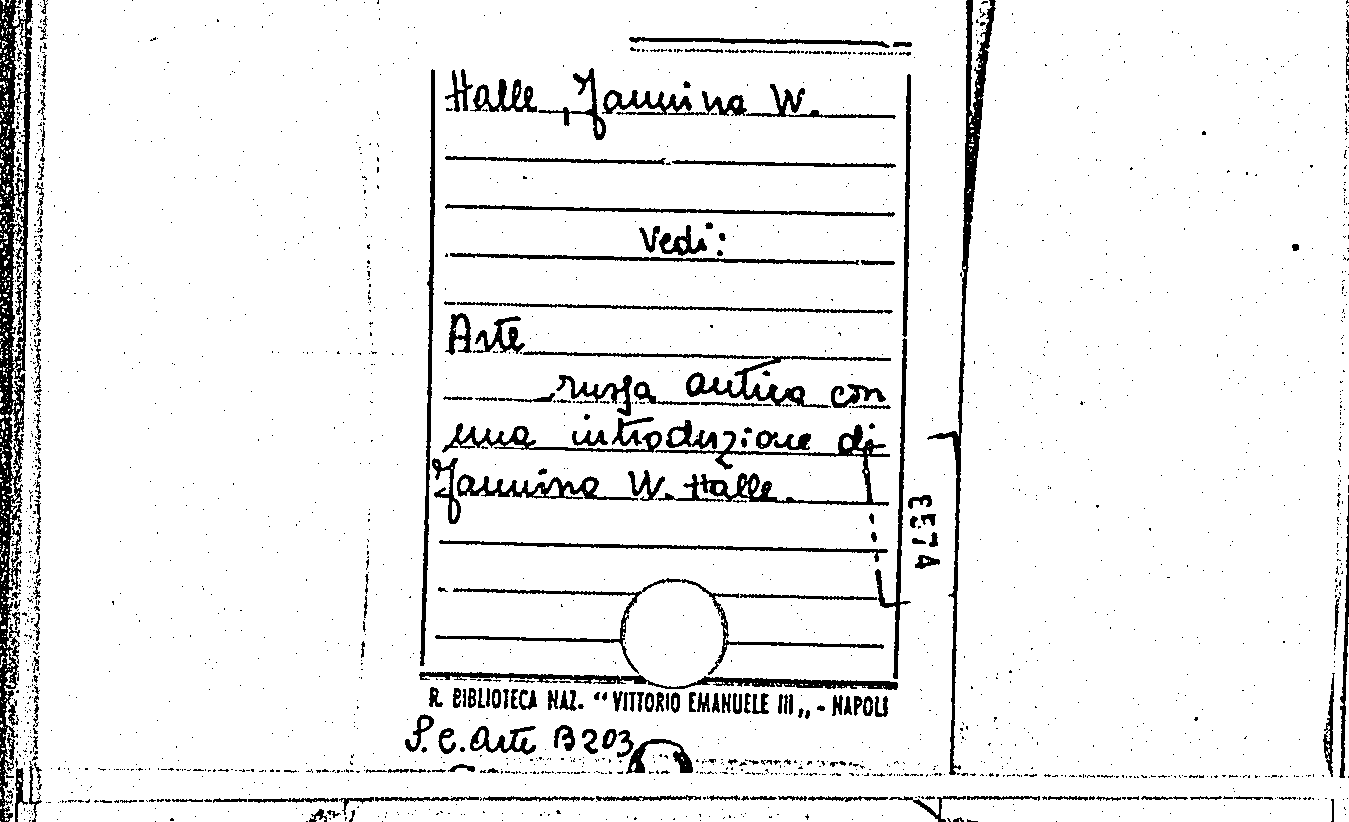 Halle, Jannina W.
Vedi:
Arte
russa antica con
una introduzione di
Jannina W. Halle.
R. BIBLIOTECA NAZ. “ VITTORIO EMANUELE III „ - NAPOLI
S. C. Arte B 203